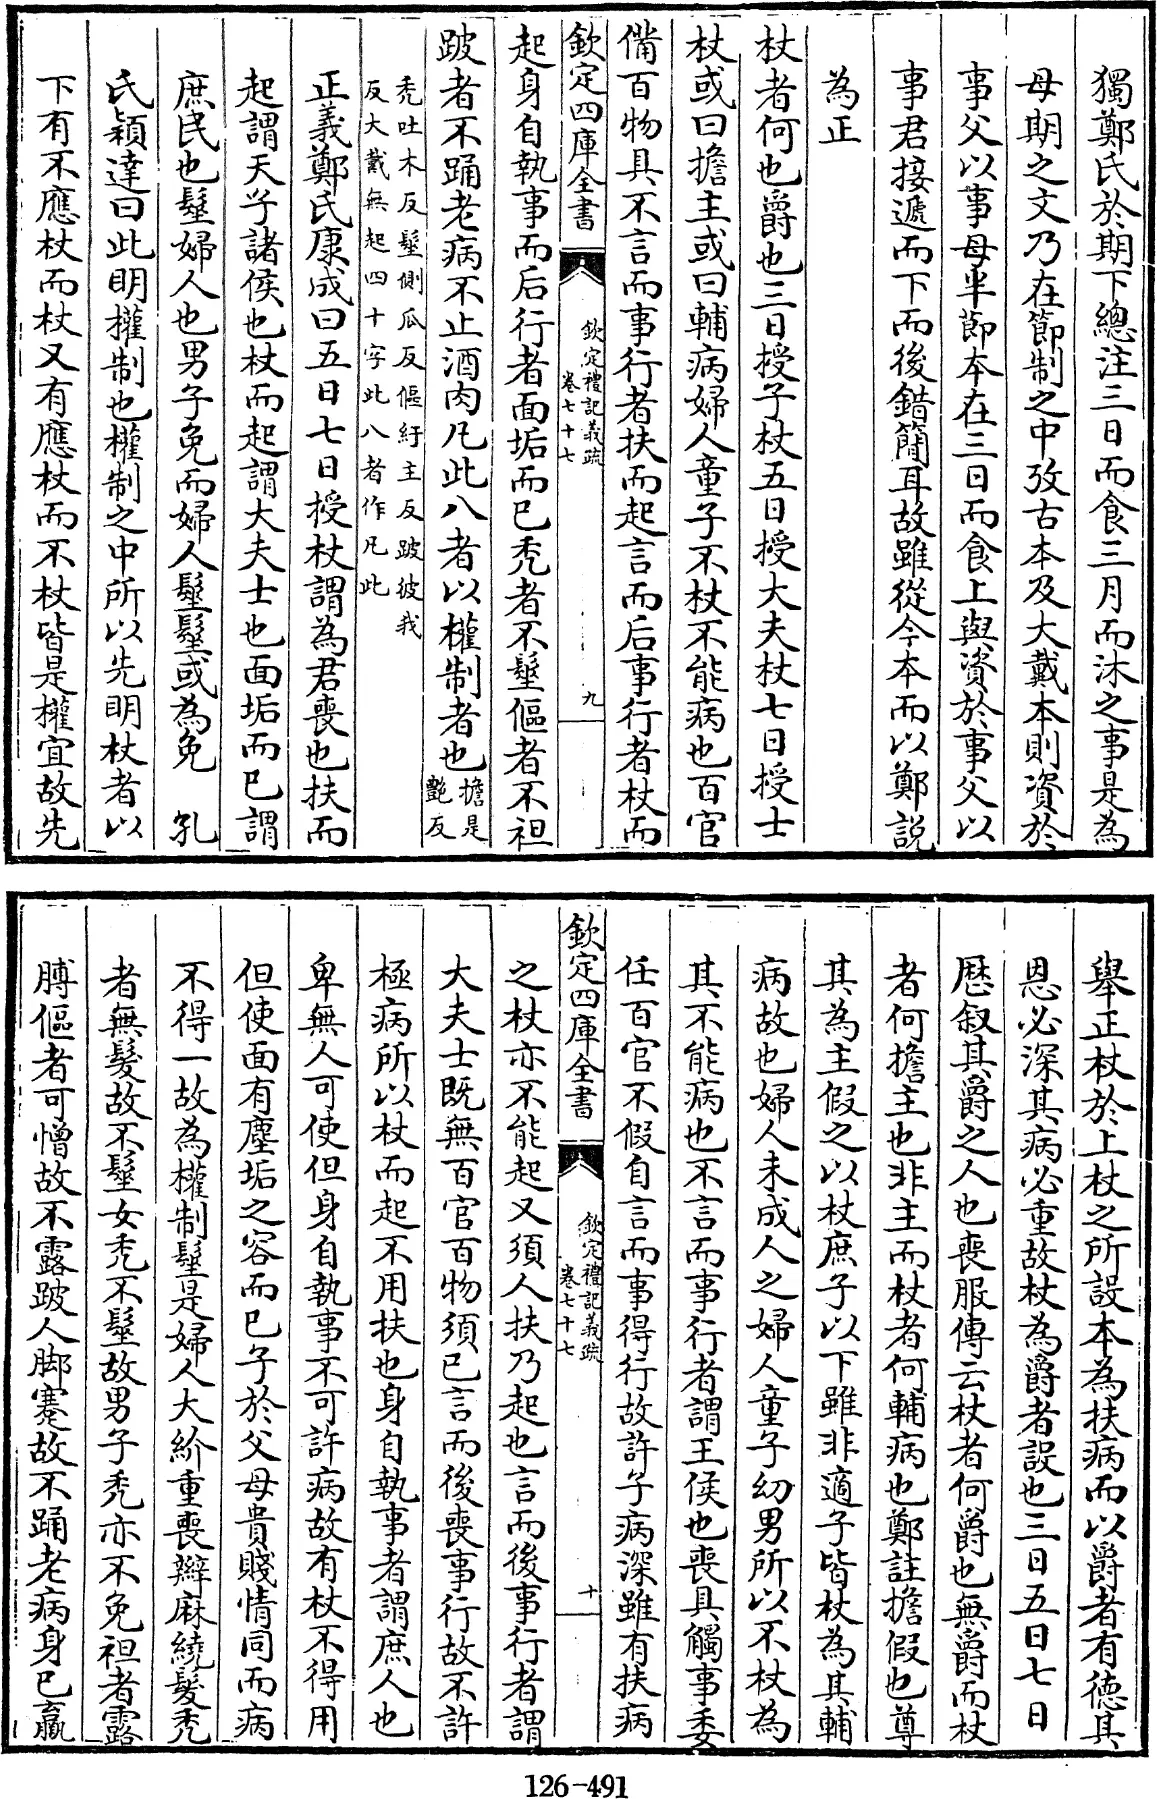 獨鄭氏於期下總注三日而食三月而沐之事是為
母期之文乃在節制之中攷古本及大戴本則資於
事父以事母半節本在三日而食上與資於事父以
事君接遞而下而後錯簡耳故雖從今本而以鄭說
為正
杖者何也爵也三日授子杖五日授大夫杖七日授士
杖或曰擔主或曰輔病婦人童子不杖不能病也百官
備百物具不言而事行者扶而起言而后事行者杖而
欽定四庫全書
欽定禮記義疏
卷七十七
九
起身自執事而后行者面垢而已禿者不髽傴者不袒
跛者不踊老病不止酒肉凡此八者以權制者也擔是
豔反
禿吐木反髽側瓜反傴紆主反跛彼我
反大戴無起四十字此八者作凡此
正義鄭氏康成曰五日七日授杖謂為君喪也扶而
起謂天子諸侯也杖而起謂大夫士也面垢而已謂
庶民也髽婦人也男子免而婦人髽髽或為免　孔
氏穎達曰此明權制也權制之中所以先明杖者以
下有不應杖而杖又有應杖而不杖皆是權宜故先
舉正杖於上杖之所設本為扶病而以爵者有德其
恩必深其病必重故杖為爵者設也三日五日七日
歷叙其爵之人也喪服傳云杖者何爵也無爵而杖
者何擔主也非主而杖者何輔病也鄭註擔假也尊
其為主假之以杖庶子以下雖非適子皆杖為其輔
病故也婦人未成人之婦人童子幼男所以不杖為
其不能病也不言而事行者謂王侯也喪具觸事委
任百官不假自言而事得行故許子病深雖有扶病
欽定四庫全書
欽定禮記義疏
卷七十七
十
之杖亦不能起又須人扶乃起也言而後事行者謂
大夫士既無百官百物須已言而後喪事行故不許
極病所以杖而起不用扶也身自執事者謂庶人也
卑無人可使但身自執事不可許病故有杖不得用
但使面有塵垢之容而已子於父母貴賤情同而病
不得一故為權制髽是婦人大紒重喪辮麻繞髮禿
者無髮故不髽女禿不髽故男子禿亦不免袒者露
膊傴者可憎故不露跛人脚蹇故不踊老病身已羸
126-491